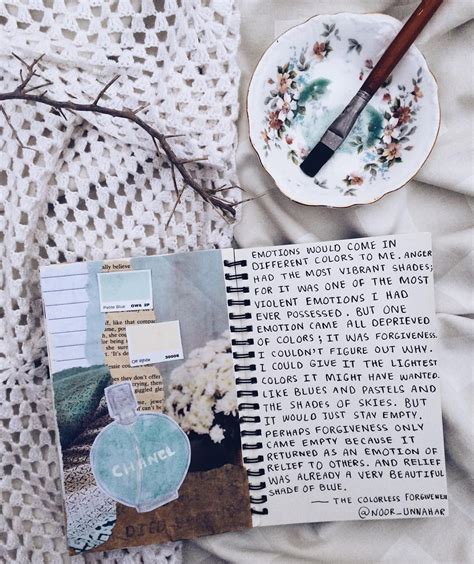 ally believe
Pablo Blue OW6 2P
, like that
comple
Off White 3000K
"I'm
they don't offend
CHANEL
EMOTIONS WOULD COME IN
DIFFERENT COLORS TO ME. ANGER
HAD THE MOST VIBRANT SHADES;
FOR IT WAS ONE OF THE MOST
VIOLENT EMOTIONS I HAD
EVER POSSESSED. BUT ONE
EMOTION CAME ALL DEPRIEVED
OF COLORS; IT WAS FORGIVENESS.
I COULDN'T FIGURE OUT WHY.
I COULD GIVE IT THE LIGHTEST
COLORS IT MIGHT HAVE WANTED.
LIKE BLUES AND PASTELS AND
THE SHADES OF SKIES. BUT
IT WOULD JUST STAY EMPTY.
PERHAPS FORGIVENESS ONLY
CAME EMPTY BECAUSE IT
RETURNED AS AN EMOTION OF
RELIEF TO OTHERS. AND RELIEF
WAS ALREADY A VERY BEAUTIFUL
SHADE OF BLUE.
— THE COLORLESS FORGIVENESS
@NOOR_UNNAHAR